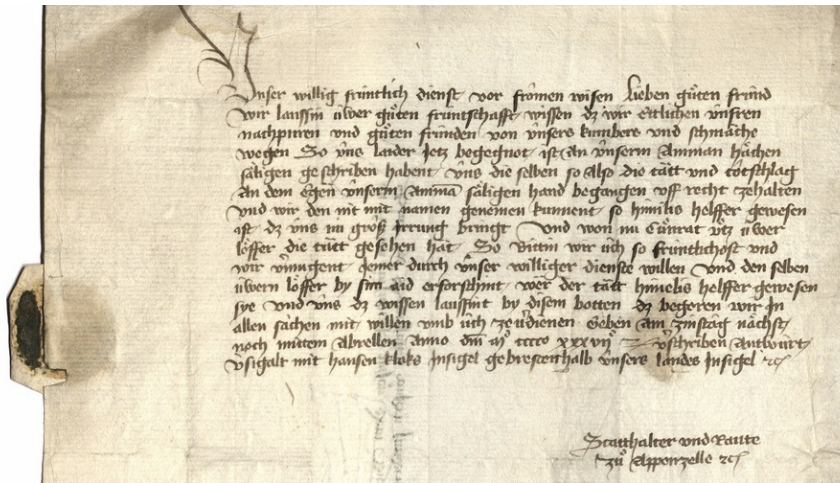 Unser willig früntlich dienst vor fromen wisen lieben gůten fründ
wir laussin üwer gůten früntschafft wissen dz wir ettlichen ünsren
nachpuren und gůten fründen von ünsers kumbers und schmäche
wegen So üns laider Jetz begegnot ist an ünserm Amman hächen
säligen geschriben habent üns die selben so Also die tätt und totschlag
An dem Egen ünserm Amma säligen hand begangen uff recht zehalten
Und wir den nit mit namen genemen kunnent so himilis helffer gewesen
ist dz üns nu groß Irrung bringt Und won nu Cůnrat ütz üwer
löffer die tätt gesehen hät So bittin wir üch so früntlichost und
wir vermugent Jemer durch ünser williger dienste willen Und den selben
üwern löffer by sim aid erforschint wer der tätt himelis helffer gewesen
sye Und üns dz wissen laussint by disem botten dz begeren wir In
allen sachen mit willen umb üch zeverdienen Geben Am zinstag nächst
noch mittem Abrellen Anno dm mo cccco xxxvijo verschriben Antwurt
versigalt mit hansen kloks Insigel gebrestenhalb ünsers landes Insigel etc
Statthalter und Raute
zů Appenzelle etc